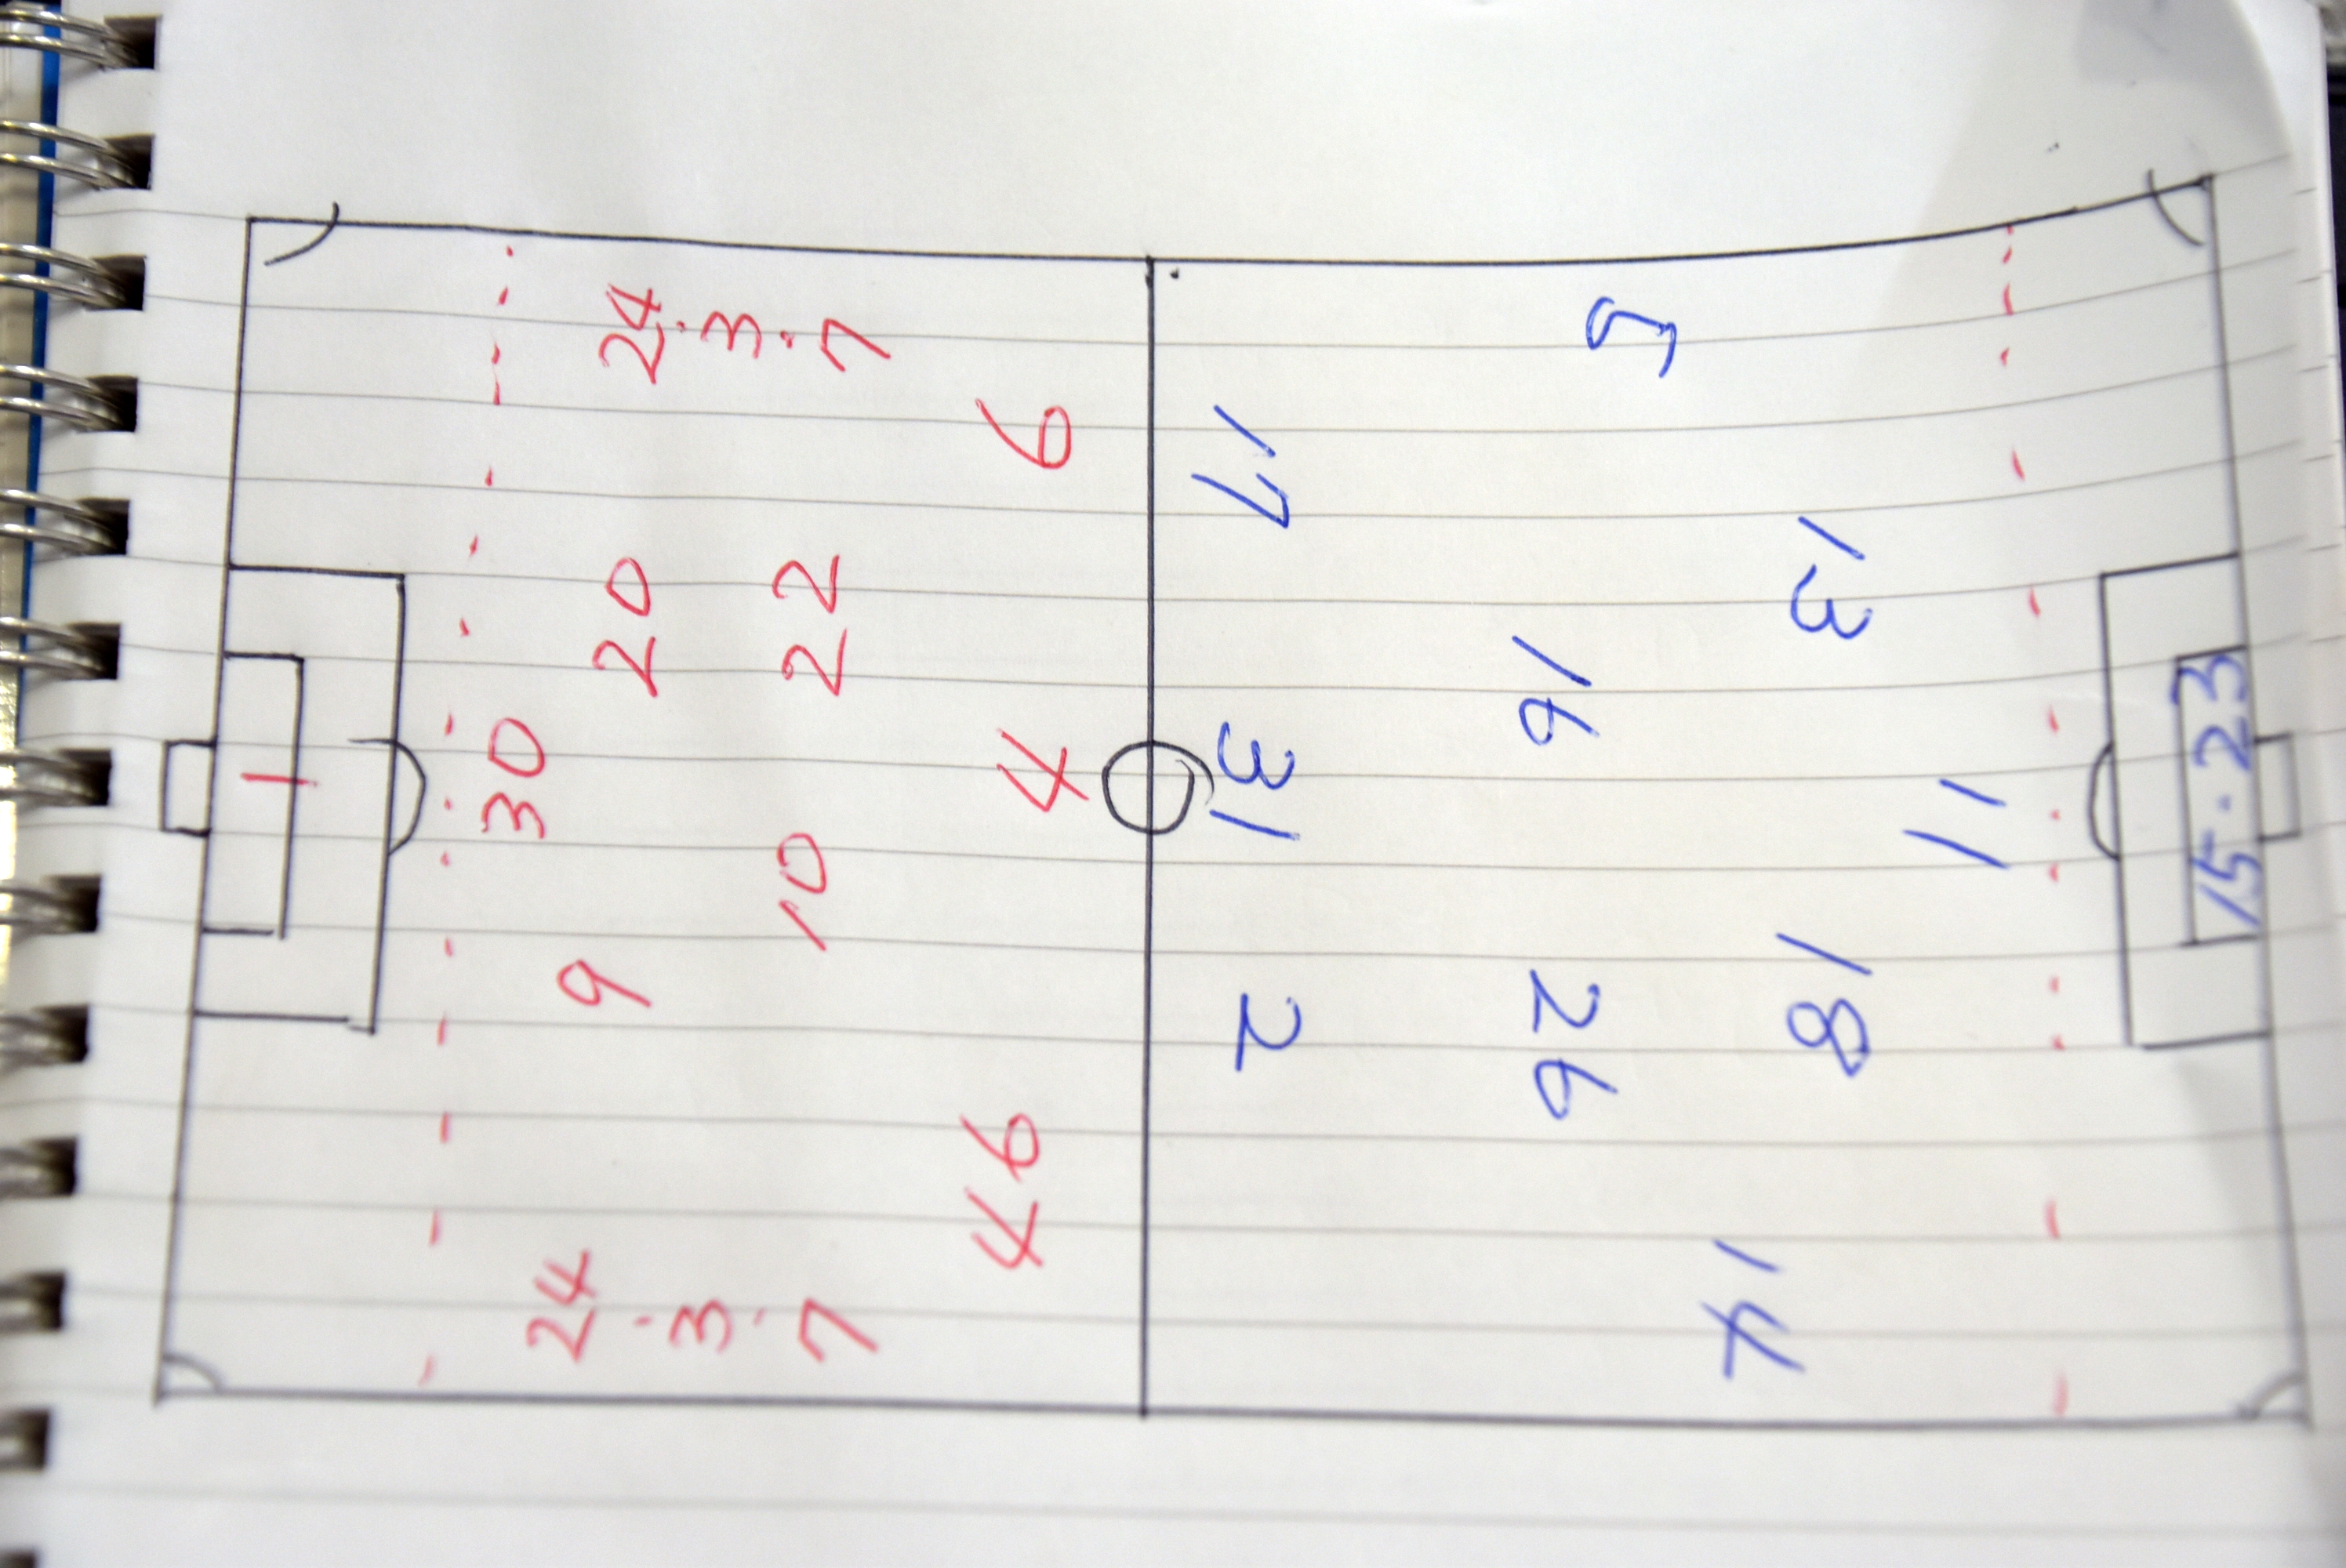 24·3·7
5
6
17
20
22
13
16
30
4
31
11
15·23
10
9
2
26
18
46
24·3·7
14
1